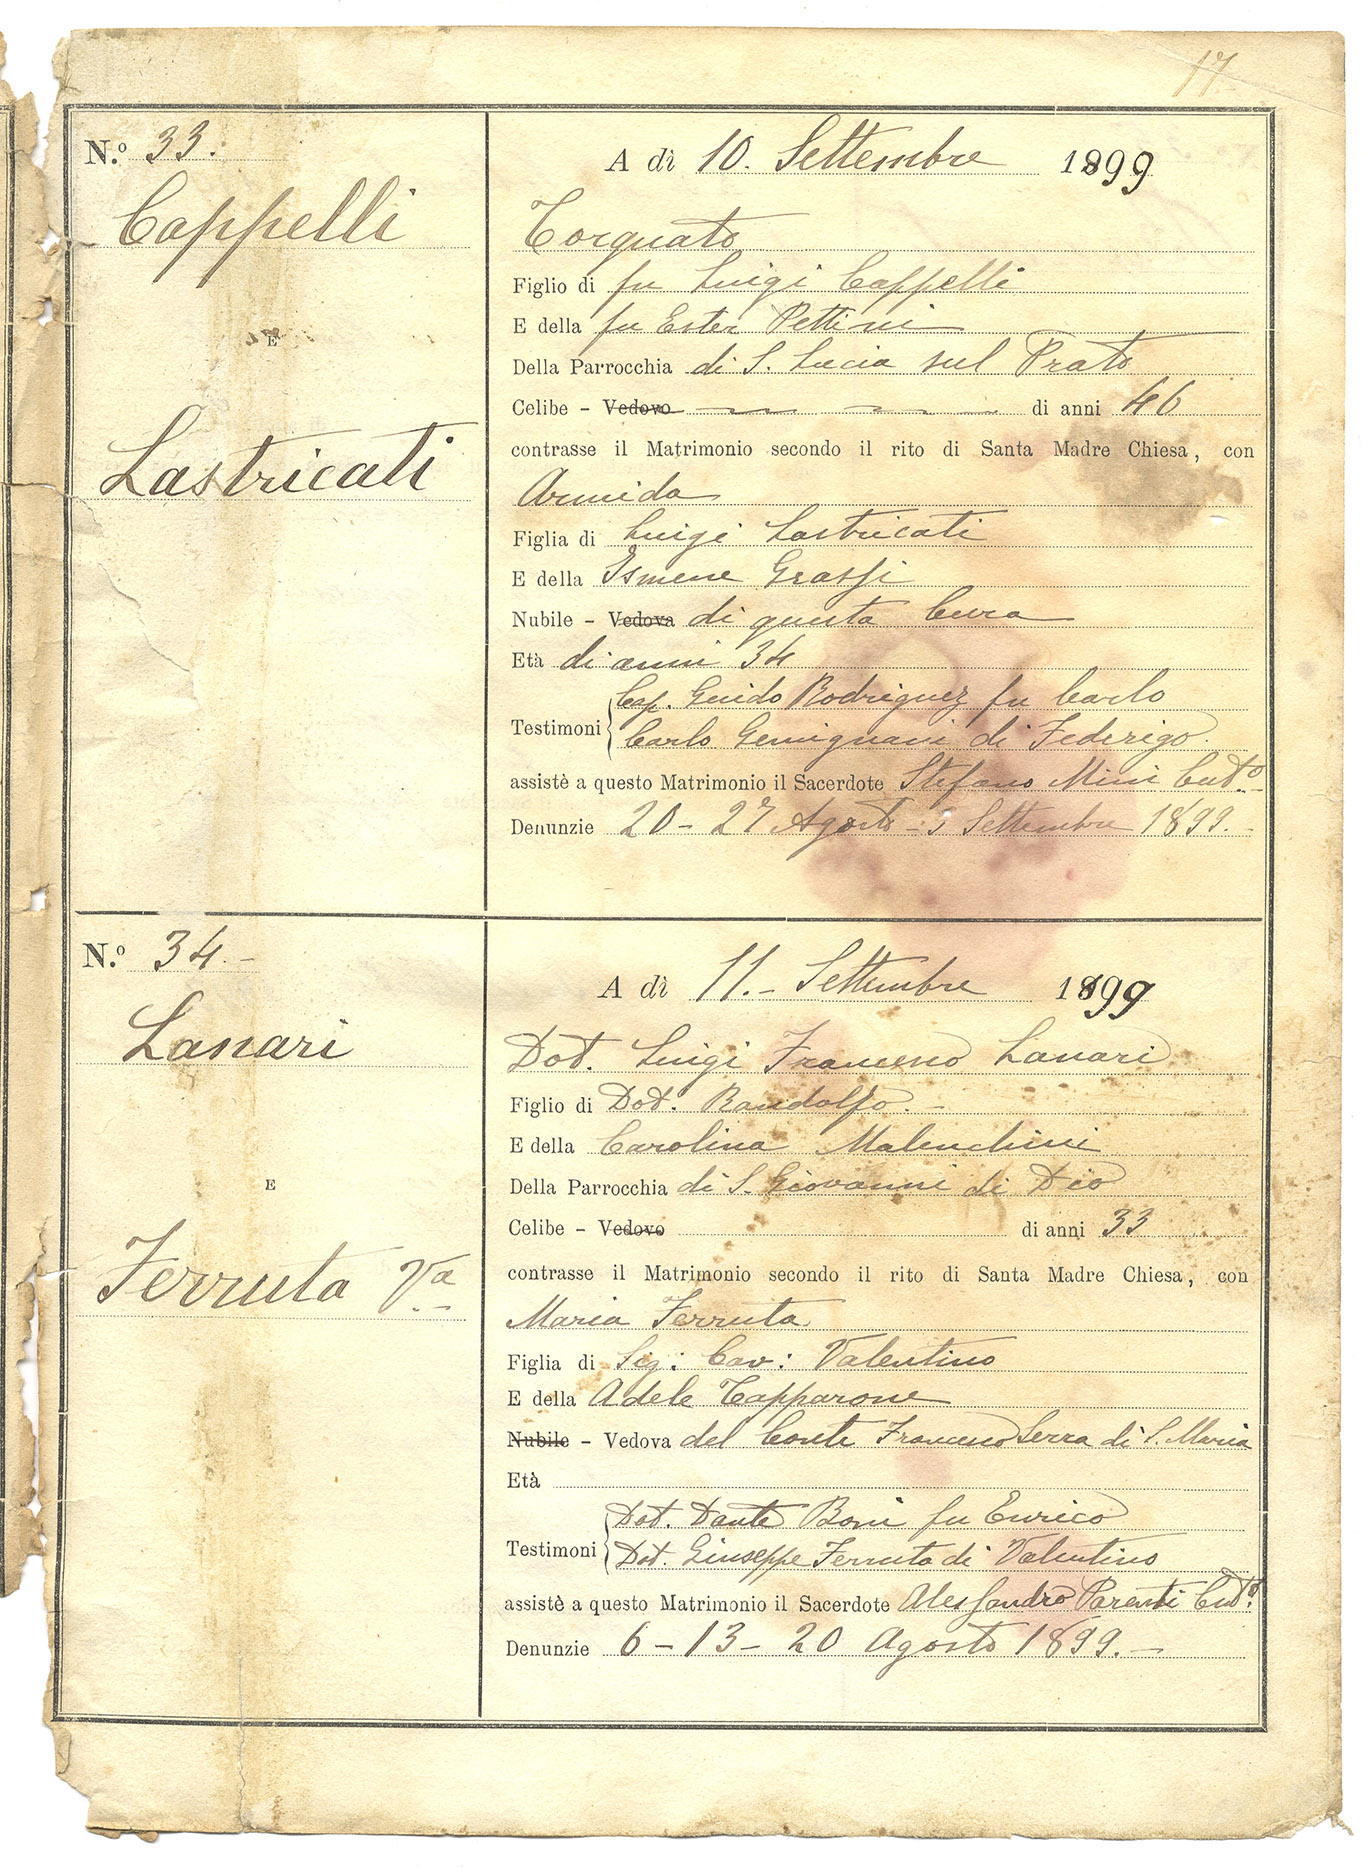 17
N.º 33.
Cappelli
E
Lastricati
A dì 10. Settembre 1899
Torquato
Figlio di fu Luigi Cappelli
E della fu Ester Pettini
Della Parrocchia di S. Lucia sul Prato
Celibe - Vedovo di anni 46
contrasse il Matrimonio secondo il rito di Santa Madre Chiesa, con
Armida
Figlia di Luigi Lastricati
E della Ismene Grassi
Nubile - Vedova di questa Cura
Età di anni 34
Testimoni Cap. Guido Rodriguez fu Carlo
Carlo Gemignani di Federigo.
assistè a questo Matrimonio il Sacerdote Stefano Mini Cut.º
Denunzie 20 - 27 Agosto - 3 Settembre 1899.-
N.º 34.-
Lanari
E
Ferruta Va
A dì 11.- Settembre 1899
Dot. Luigi Francesco Lanari
Figlio di Dot. Randolfo.-
E della Carolina Malenchini
Della Parrocchia di S. Giovanni di Dio
Celibe - Vedovo di anni 33
contrasse il Matrimonio secondo il rito di Santa Madre Chiesa, con
Maria Ferruta
Figlia di Sig: Cav: Valentino
E della Adele Tapparone
Nubile - Vedova del Conte Francesco Serra di S. Maria
Età
Testimoni Dot. Dante Boni fu Enrico
Dot. Giuseppe Ferruta di Valentino
assistè a questo Matrimonio il Sacerdote Alessandro Parenti Cut.º
Denunzie 6 - 13 - 20 Agosto 1899.-